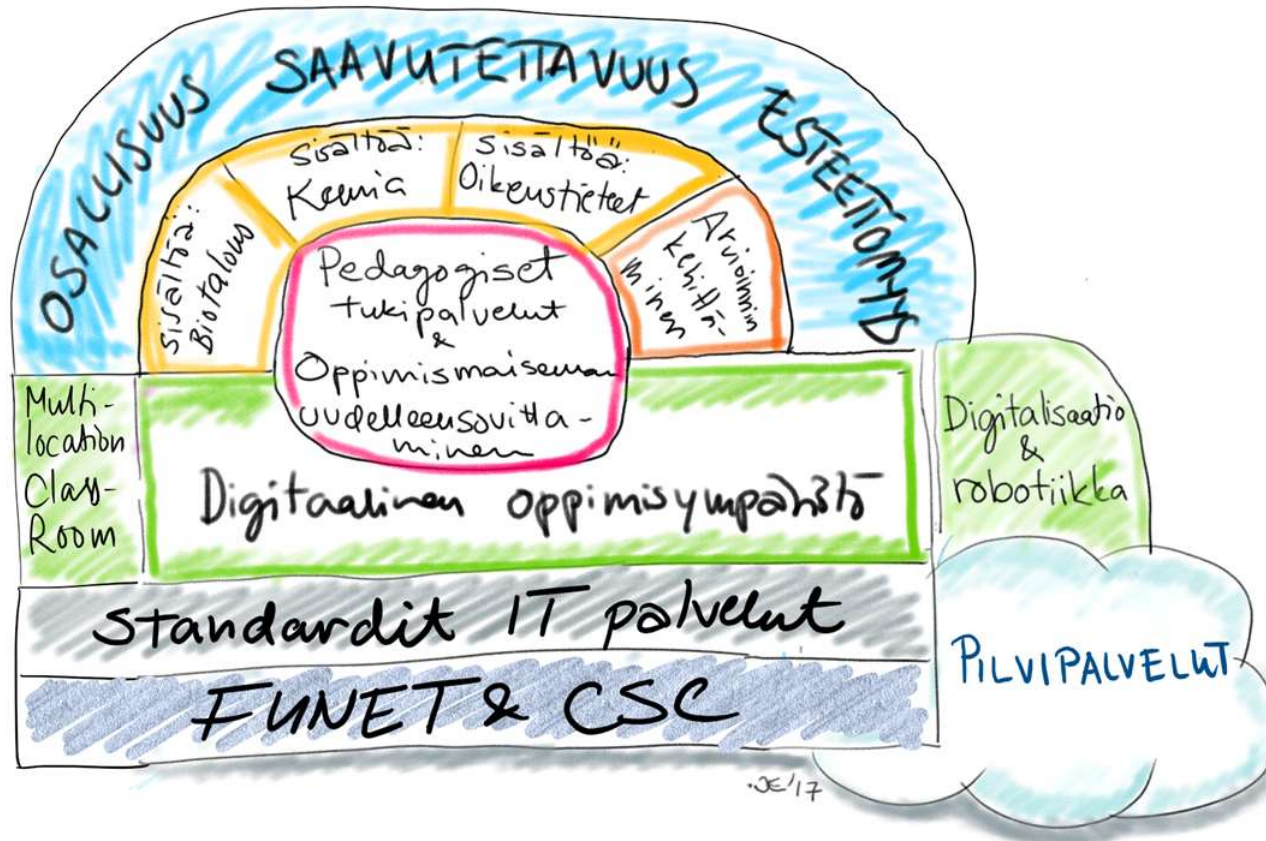 OSALLISUUS SAAVUTETTAVUUS ESTEETTÖMYYS
Sisältöä:
Biotalous
Sisältöä:
Kemia
Sisältöä:
Oikeustieteet
Arvioinnin
kehittä-
minen
Pedagogiset
tukipalvelut
&
Oppimismaiseman
uudelleensovitta-
minen
Multi-
location
Class-
Room
Digitaalinen oppimisympäristö
Digitalisaatio
&
robotiikka
Standardit IT palvelut
FUNET & CSC
PILVIPALVELUT
JE'17